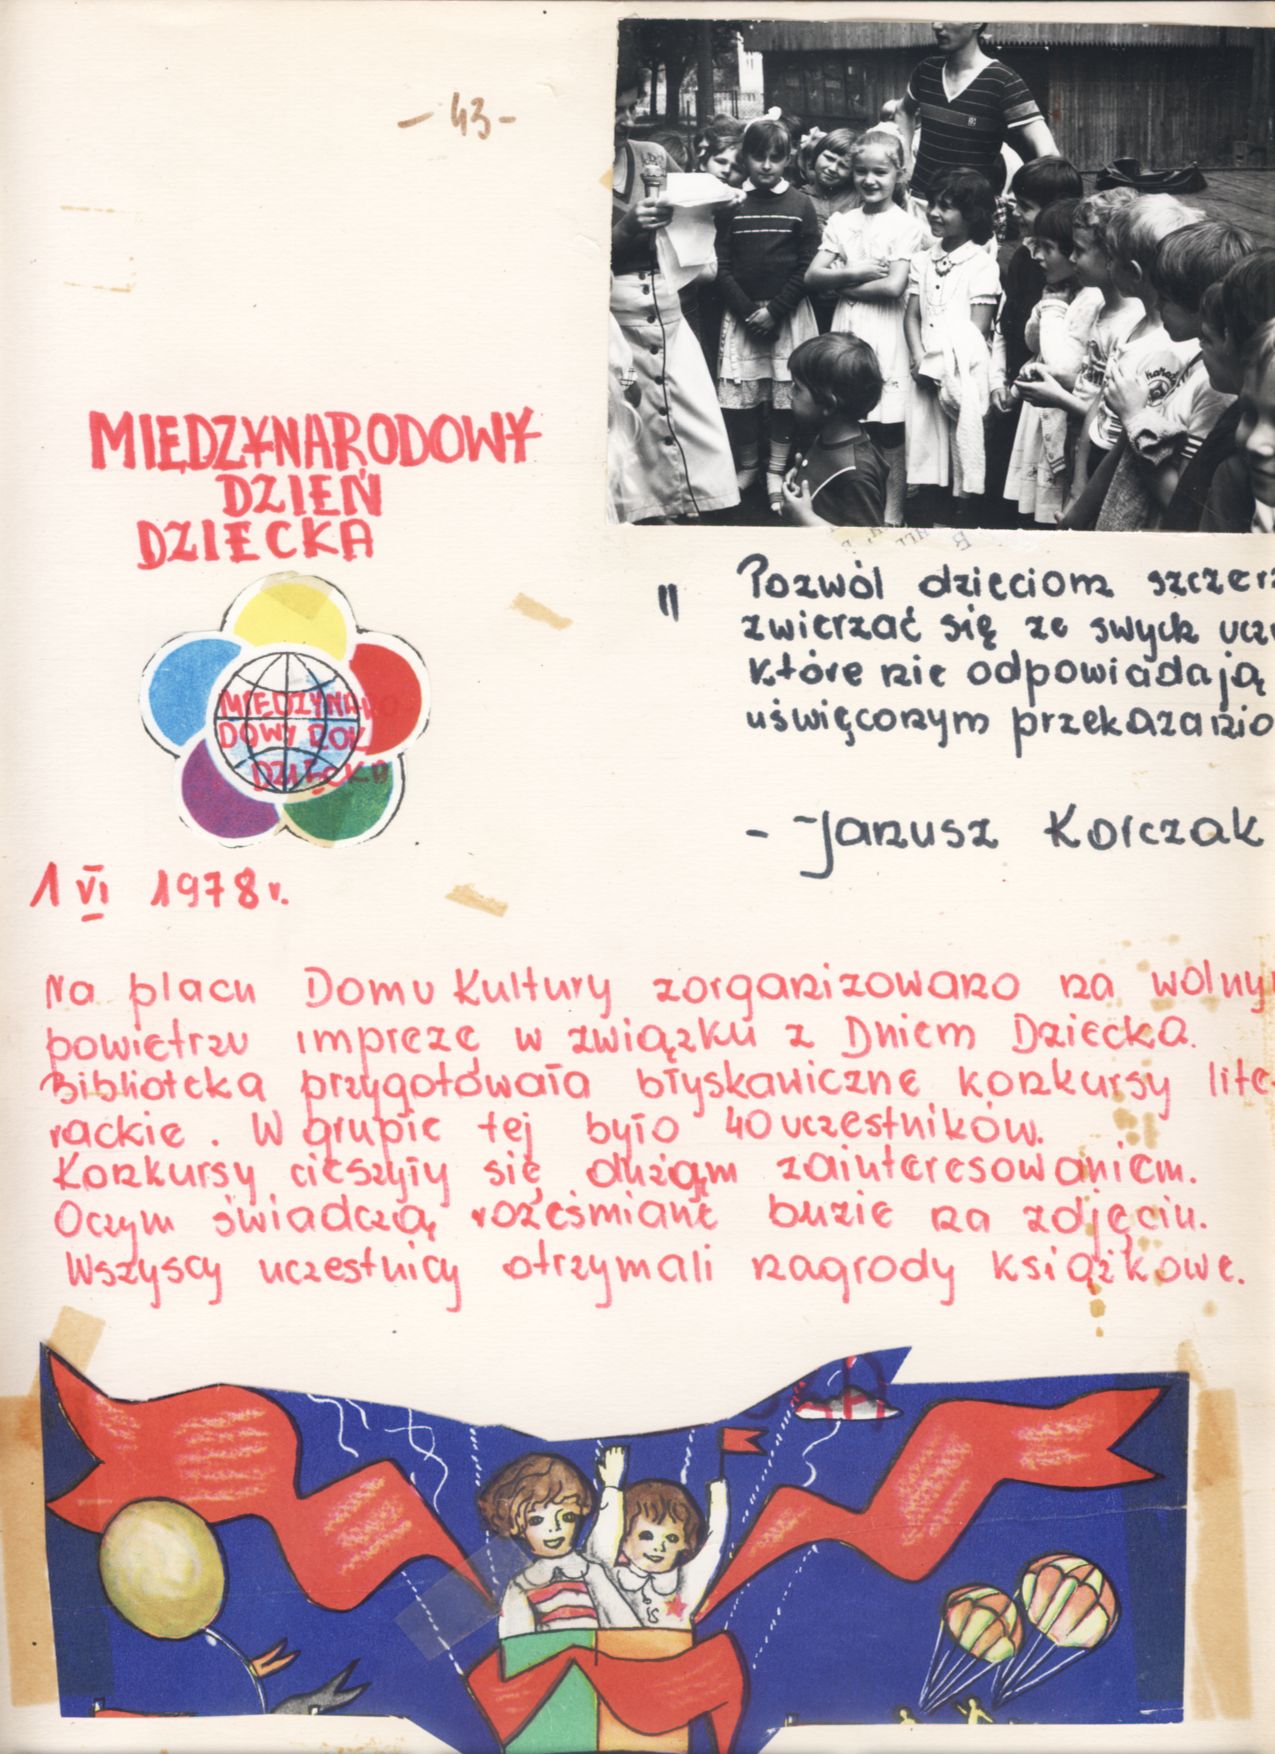 - 43 -
MIĘDZYNARODOWY
DZIEŃ
DZIECKA
MIĘDZYNARO
DOWY ROK
DZIECKA
1 VI 1978 r.
" Pozwól dzieciom szczerz
zwierzać się ze swych uczu
które nie odpowiadają
uświęconym przekazanio
- Janusz Korczak
Na placu Domu Kultury zorganizowano na wolnym
powietrzu imprezę w związku z Dniem Dziecka.
Biblioteka przygotowała błyskawiczne konkursy lite-
rackie. W grupie tej było 40 uczestników.
Konkursy cieszyły się dużym zainteresowaniem.
Oczym świadczą roześmiane buzie na zdjęciu.
Wszyscy uczestnicy otrzymali nagrody książkowe.